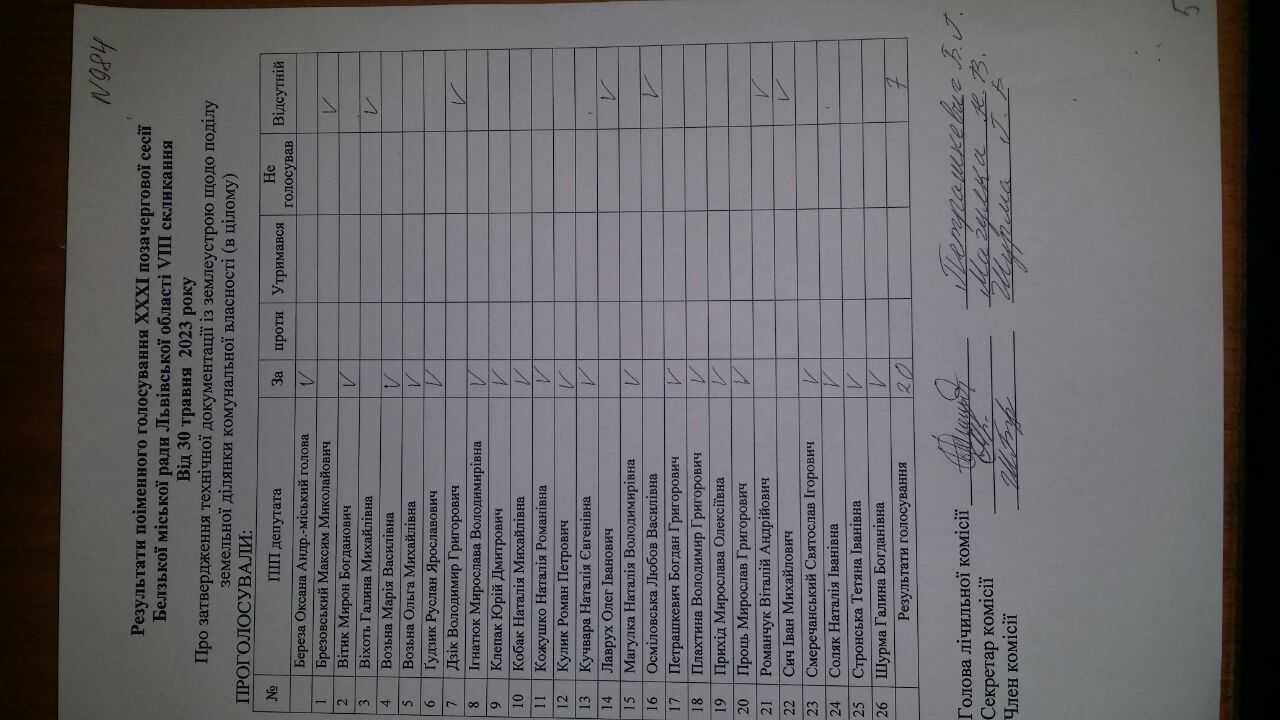 N984
Результати поіменного голосування XXXI позачергової сесії
Белзької міської ради Львівської області VIII скликання
Від 30 травня 2023 року
Про затвердження технічної документації із землеустрою щодо поділу
земельної ділянки комунальної власності (в цілому)
ПРОГОЛОСУВАЛИ:
№ ПІП депутата За проти Утримався Не голосував Відсутній
Береза Оксана Андр.-міський голова V
1 Брезовський Максим Миколайович V
2 Вітик Мирон Богданович V
3 Віхоть Галина Михайлівна V
4 Возьна Марія Василівна V
5 Возьна Ольга Михайлівна V
6 Гудзик Руслан Ярославович V
7 Дзік Володимир Григорович V
8 Ігнатюк Мирослава Володимирівна V
9 Клепак Юрій Дмитрович V
10 Кобак Наталія Михайлівна V
11 Кожушко Наталія Романівна V
12 Кулик Роман Петрович V
13 Кучвара Наталія Євгенівна V
14 Лаврух Олег Іванович V
15 Магулка Наталія Володимирівна V
16 Осміловська Любов Василівна V
17 Петрашкевич Богдан Григорович V
18 Плахтина Володимир Григорович V
19 Прихід Мирослава Олексіївна V
20 Проць Мирослав Григорович V
21 Романчук Віталій Андрійович V
22 Сич Іван Михайлович V
23 Смеречанський Святослав Ігорович V
24 Соляк Наталія Іванівна V
25 Стронська Тетяна Іванівна V
26 Щурма Галина Богданівна V
Результати голосування 20 7
Голова лічильної комісії Петрашкевич Б. Г.
Секретар комісії Магулка Н. В.
Член комісії Щурма Г. Б.
5